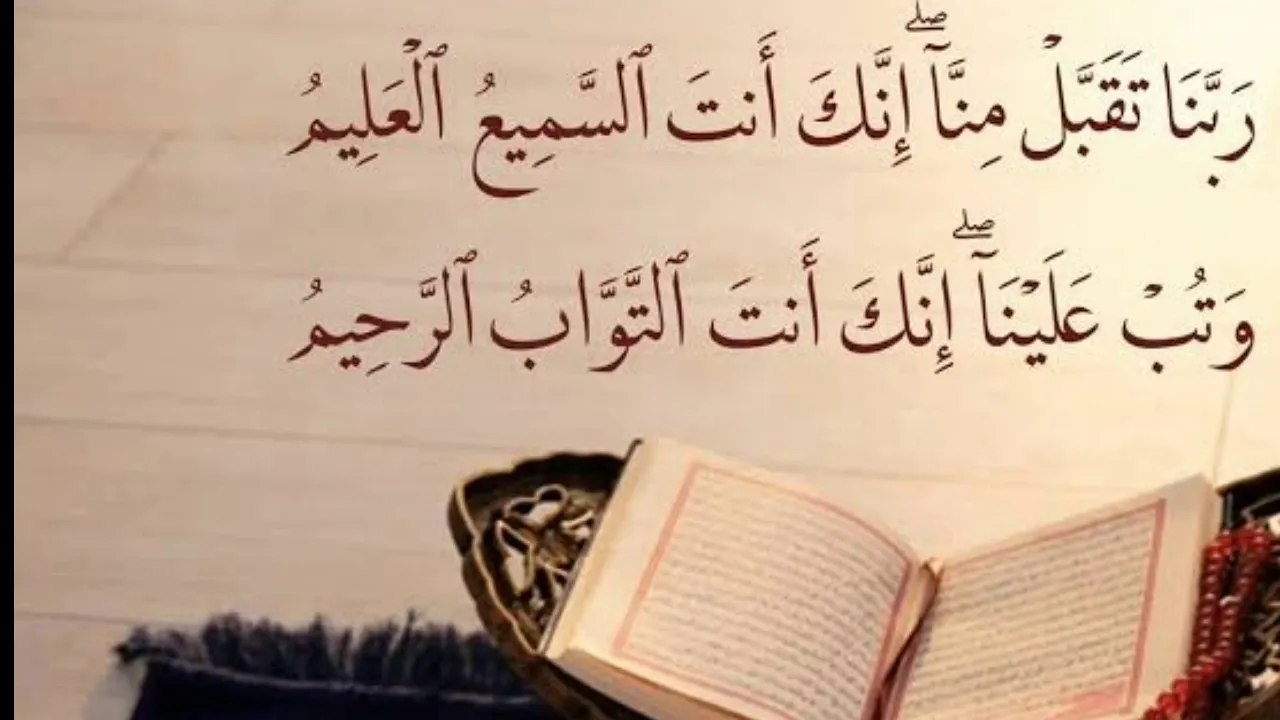 رَبَّنَا تَقَبَّلْ مِنَّآ ۖ إِنَّكَ أَنتَ ٱلسَّمِيعُ ٱلْعَلِيمُ
وَتُبْ عَلَيْنَآ ۖ إِنَّكَ أَنتَ ٱلتَّوَّابُ ٱلرَّحِيمُ